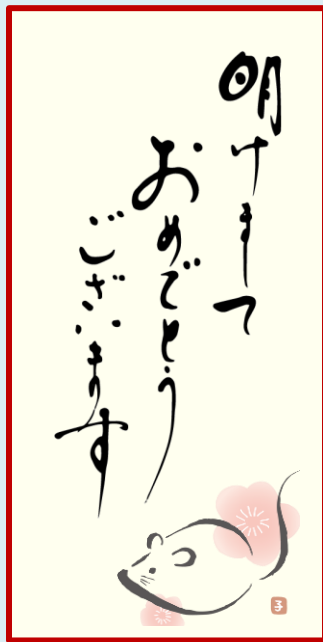 明けまして
おめでとう
ございます
子